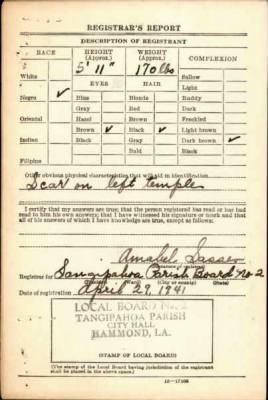 REGISTRAR'S REPORT
DESCRIPTION OF REGISTRANT
RACE HEIGHT (Approx.) WEIGHT (Approx.) COMPLEXION
5' 11" 170 lbs
White Sallow
EYES HAIR Light
Negro ✓ Blue Blonde Ruddy
Gray Red Dark
Oriental Hazel Brown Freckled
Brown ✓ Black ✓ Light brown
Indian Black Gray Dark brown ✓
Bald Black
Filipino
Other obvious physical characteristics that will aid in identification
Scar on left temple
I certify that my answers are true; that the person registered has read or has had
read to him his own answers; that I have witnessed his signature or mark and that
all of his answers of which I have knowledge are true, except as follows:
Amabel Sasser
(Signature of registrar)
Registrar for Tangipahoa Parish Board No 2
(City or county) (State)
Date of registration April 29, 1941
LOCAL BOARD NO. 2
TANGIPAHOA PARISH
CITY HALL
HAMMOND, LA.
(STAMP OF LOCAL BOARD)
(The stamp of the Local Board having jurisdiction of the registrant
shall be placed in the above space.)